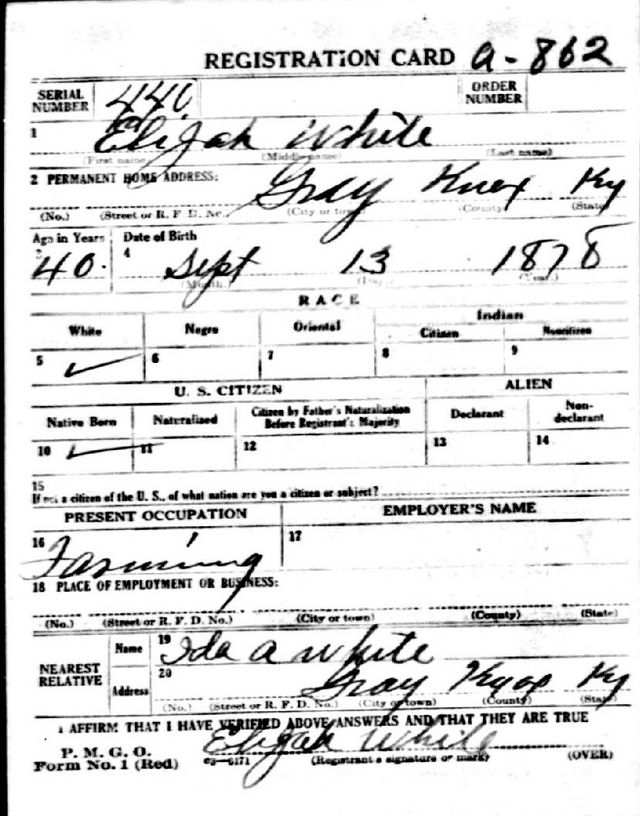 REGISTRATION CARD a-862
SERIAL NUMBER 440 ORDER NUMBER
1 Elijah White
(First name) (Middle name) (Last name)
2 PERMANENT HOME ADDRESS: Gray Knox Ky
(No.) (Street or R. F. D. No.) (City or town) (County) (State)
Age in Years Date of Birth
3 40. 4 Sept 13 1878
(Month.) (Day.) (Year.)
RACE
White Negro Oriental Indian
Citizen Noncitizen
5 ✓ 6 7 8 9
U. S. CITIZEN ALIEN
Native Born Naturalized Citizen by Father's Naturalization Before Registrant's Majority Declarant Non-declarant
10 ✓ 11 12 13 14
15
If not a citizen of the U. S., of what nation are you a citizen or subject?
PRESENT OCCUPATION EMPLOYER'S NAME
16 Farming 17
18 PLACE OF EMPLOYMENT OR BUSINESS:
(No.) (Street or R. F. D. No.) (City or town) (County) (State)
NEAREST RELATIVE Name 19 Ida A White
Address 20 Gray Knox Ky
(No.) (Street or R. F. D. No.) (City or town) (County) (State)
I AFFIRM THAT I HAVE VERIFIED ABOVE ANSWERS AND THAT THEY ARE TRUE
P. M. G. O. Elijah White
Form No. 1 (Red) 03-6171 (Registrant's signature or mark) (OVER)